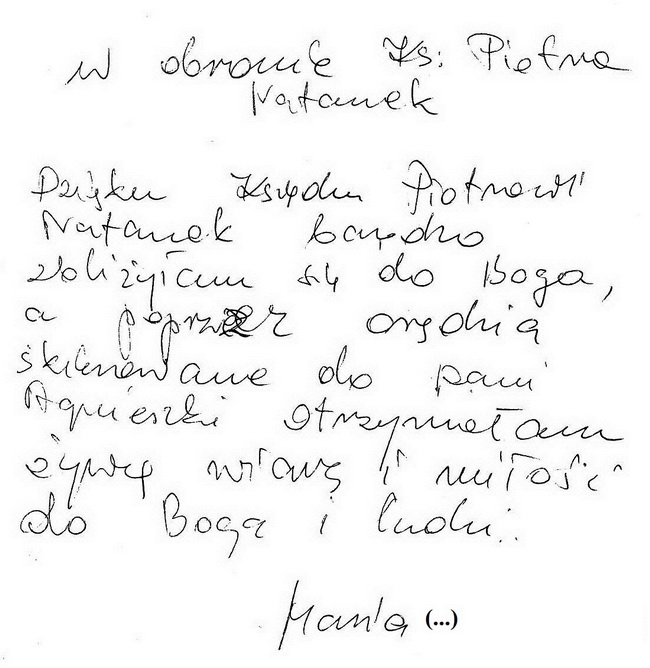 W obronie Ks: Piotra
Natanek
Dzięku Księdzu Piotrowi
Natanek bardzo
zbliżyłam się do Boga,
a poprzez orędzia
skierowane do pani
Agnieszki otrzymałam
żywą wiarę i miłość
do Boga i ludzi.
Maria (...)